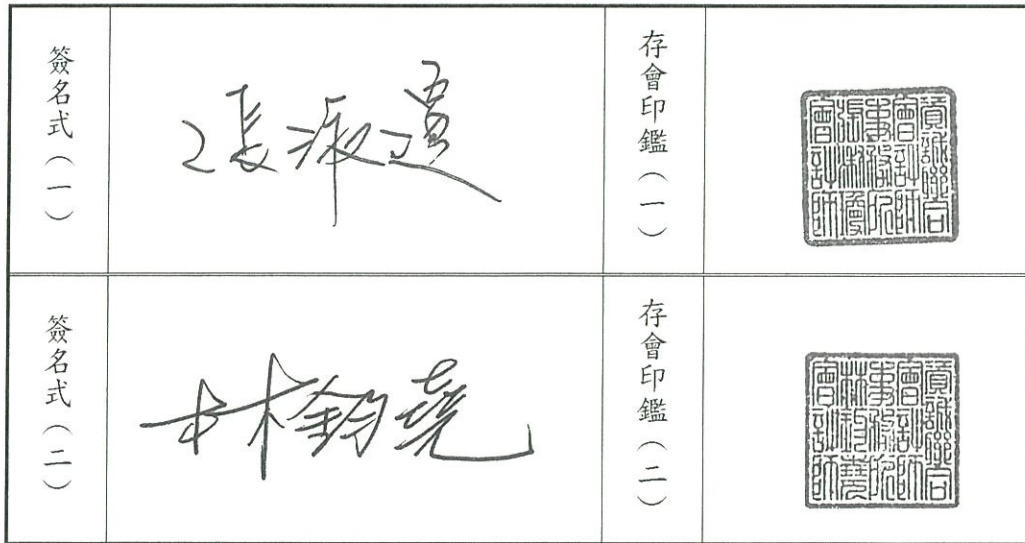 簽名式（一）
張淑瓊
存會印鑑（一）
資誠聯合
會計師
事務所
張淑瓊
會計師
簽名式（二）
林鈞堯
存會印鑑（二）
資誠聯合
會計師
事務所
林鈞堯
會計師